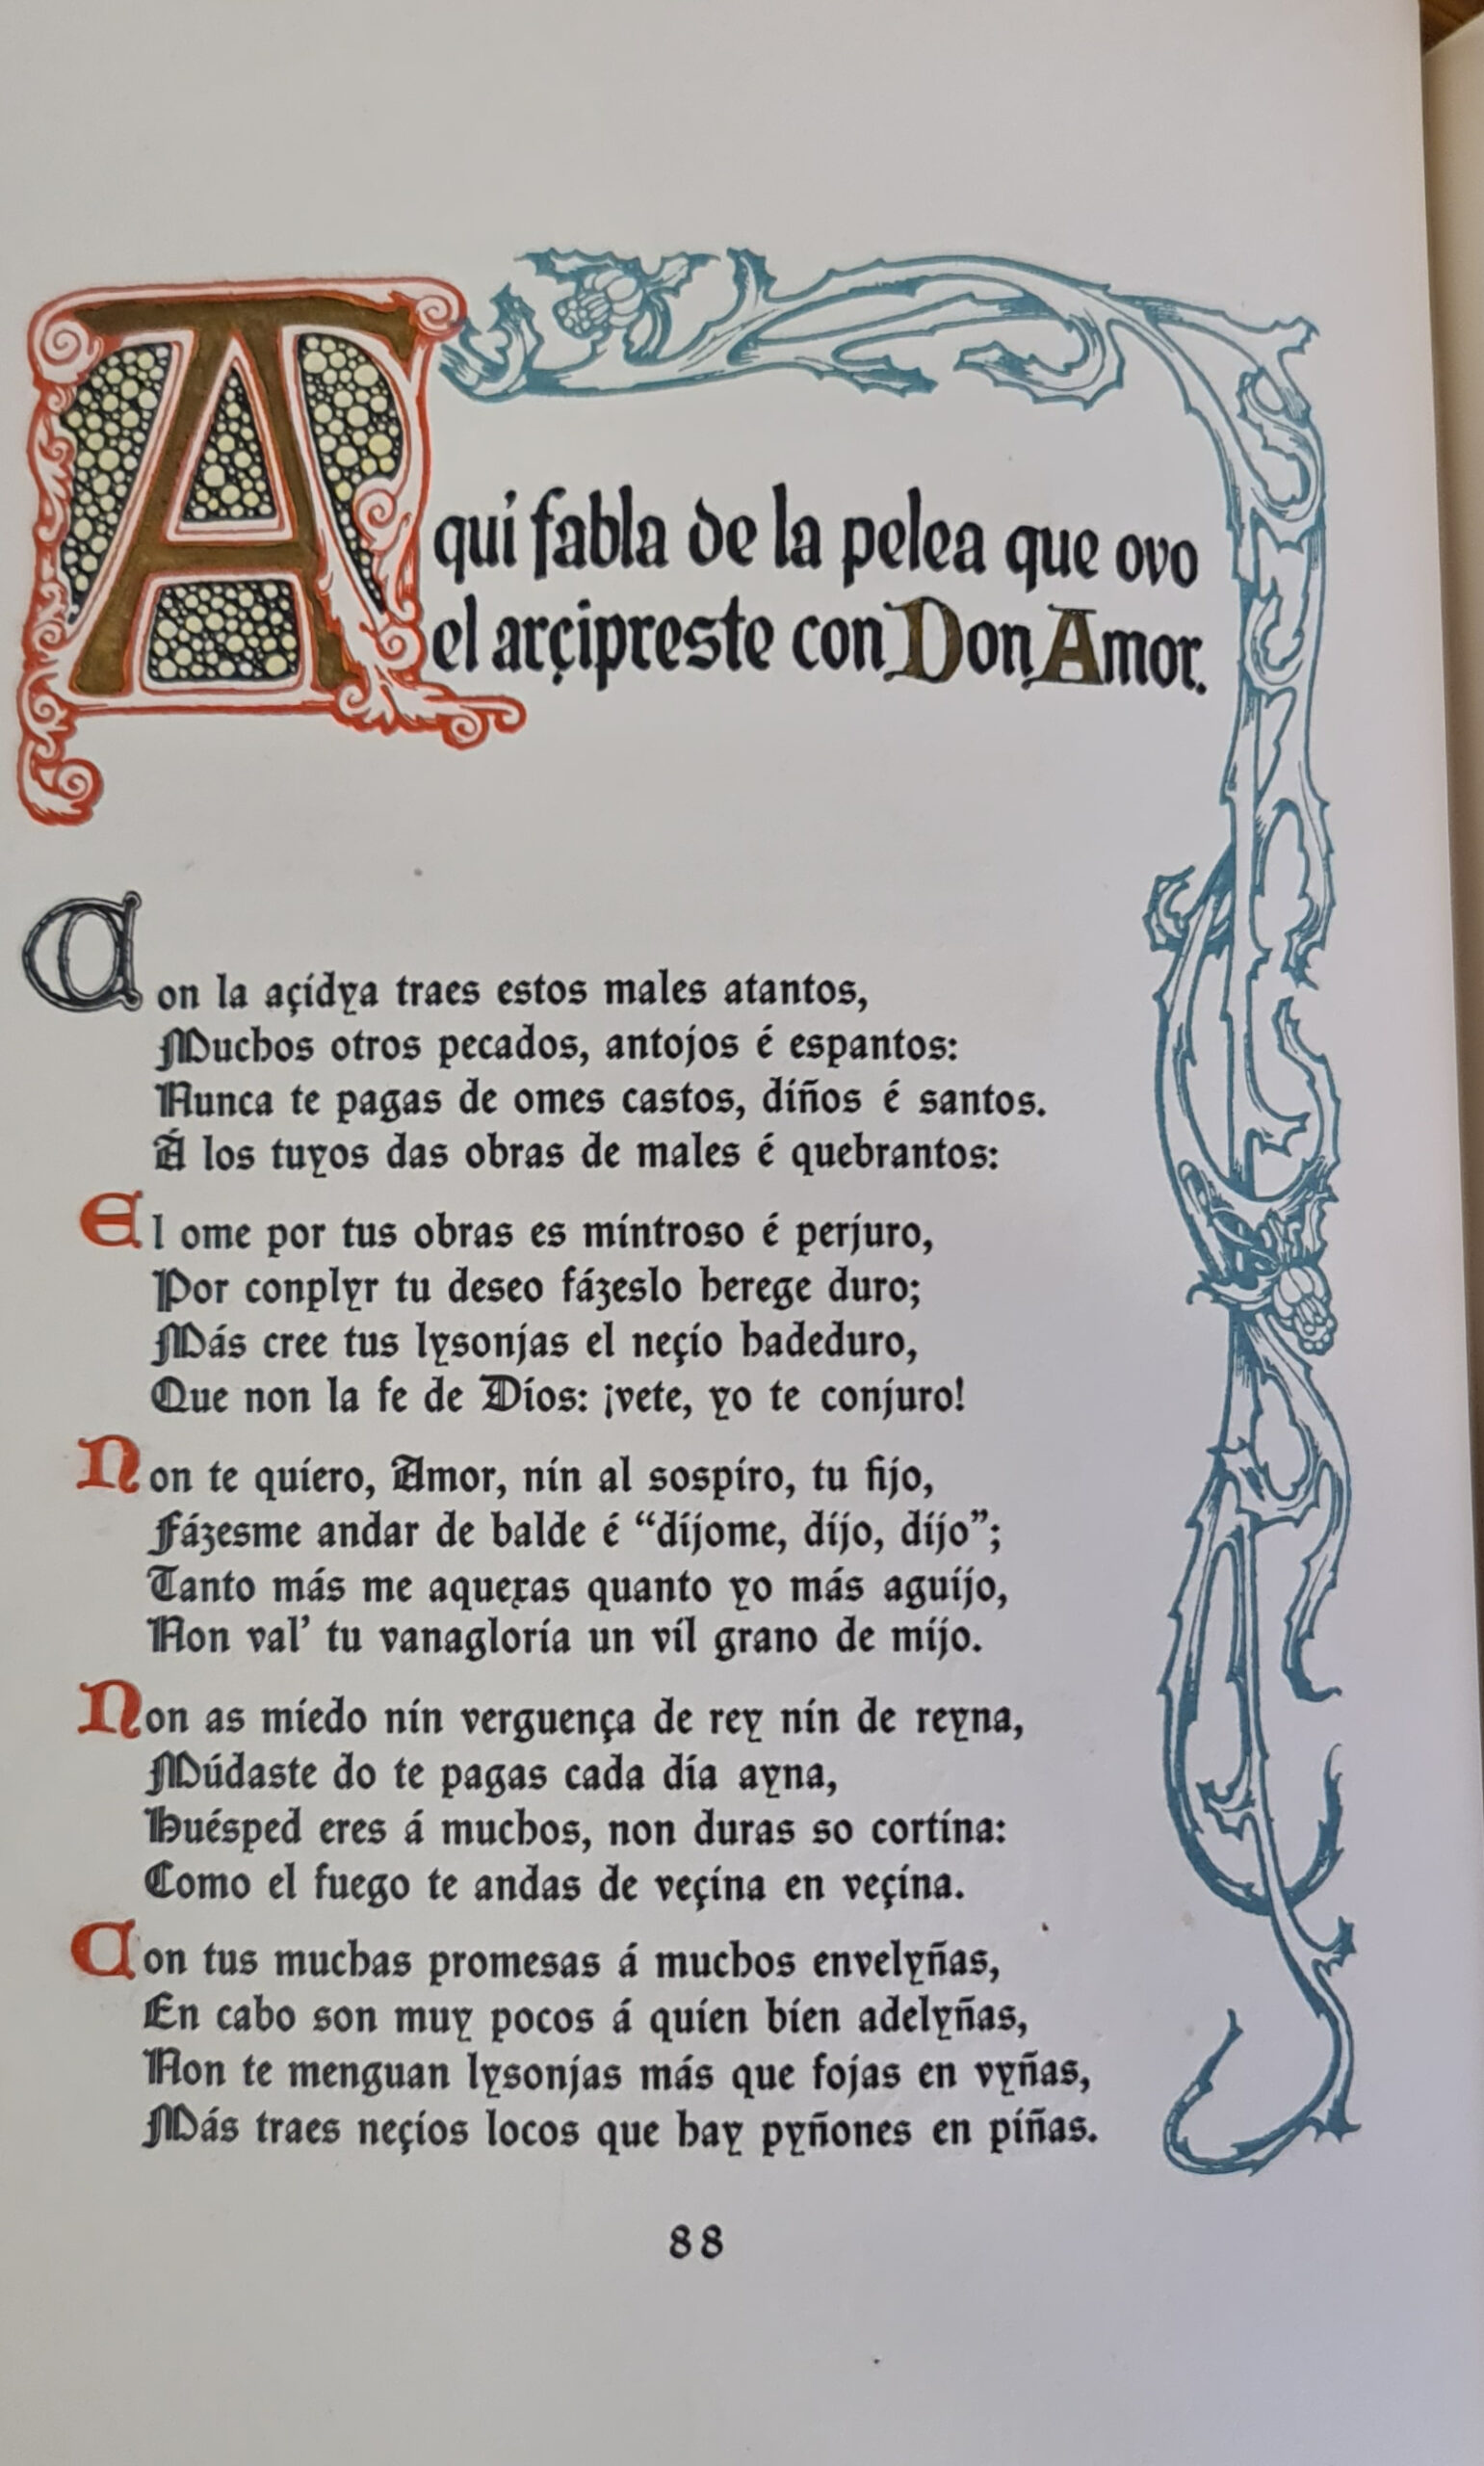 Aqui fabla de la pelea que ovo
el arçipreste con Don Amor.
Con la açidya traes estos males atantos,
Muchos otros pecados, antojos é espantos:
Nunca te pagas de omes castos, diños é santos.
Á los tuyos das obras de males é quebrantos:
El ome por tus obras es mintroso é perjuro,
Por conplyr tu deseo fázeslo herege duro;
Más cree tus lysonjas el neçio hadeduro,
Que non la fe de Dios: ¡vete, yo te conjuro!
Non te quiero, Amor, nin al sospiro, tu fijo,
Fázesme andar de balde é “díjome, dijo, dijo”;
Tanto más me aquexas quanto yo más aguijo,
Non val’ tu vanagloria un vil grano de mijo.
Non as miedo nin verguença de rey nin de reyna,
Múdaste do te pagas cada día ayna,
Huésped eres á muchos, non duras so cortina:
Como el fuego te andas de veçina en veçina.
Con tus muchas promesas á muchos envelyñas,
En cabo son muy pocos á quien bien adelyñas,
Non te menguan lysonjas más que fojas en vyñas,
Más traes neçios locos que hay pyñones en piñas.
88